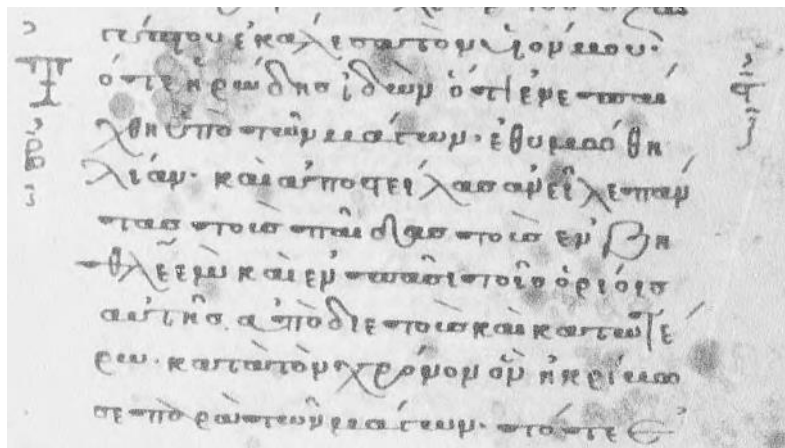 γύπτου ἐκάλεσα τὸν υἱόν μου·
Τότε ἡρώδης ἰδὼν ὅτι ἐνεπαί
χθη ὑπὸ τῶν μάγων· ἐθυμώθη
λίαν· καὶ ἀποστείλας ἀνεῖλε πάν
τας τοὺς παῖδας τοὺς ἐν βη
θλεὲμ καὶ ἐν πᾶσι τοῖς ὁρίοις
αὐτῆς. ἀπὸ διετοῦς καὶ κατωτέ
ρω· κατὰ τὸν χρόνον ὃν ἠκρίβω
σε παρὰ τῶν μάγων· τότε ἐ